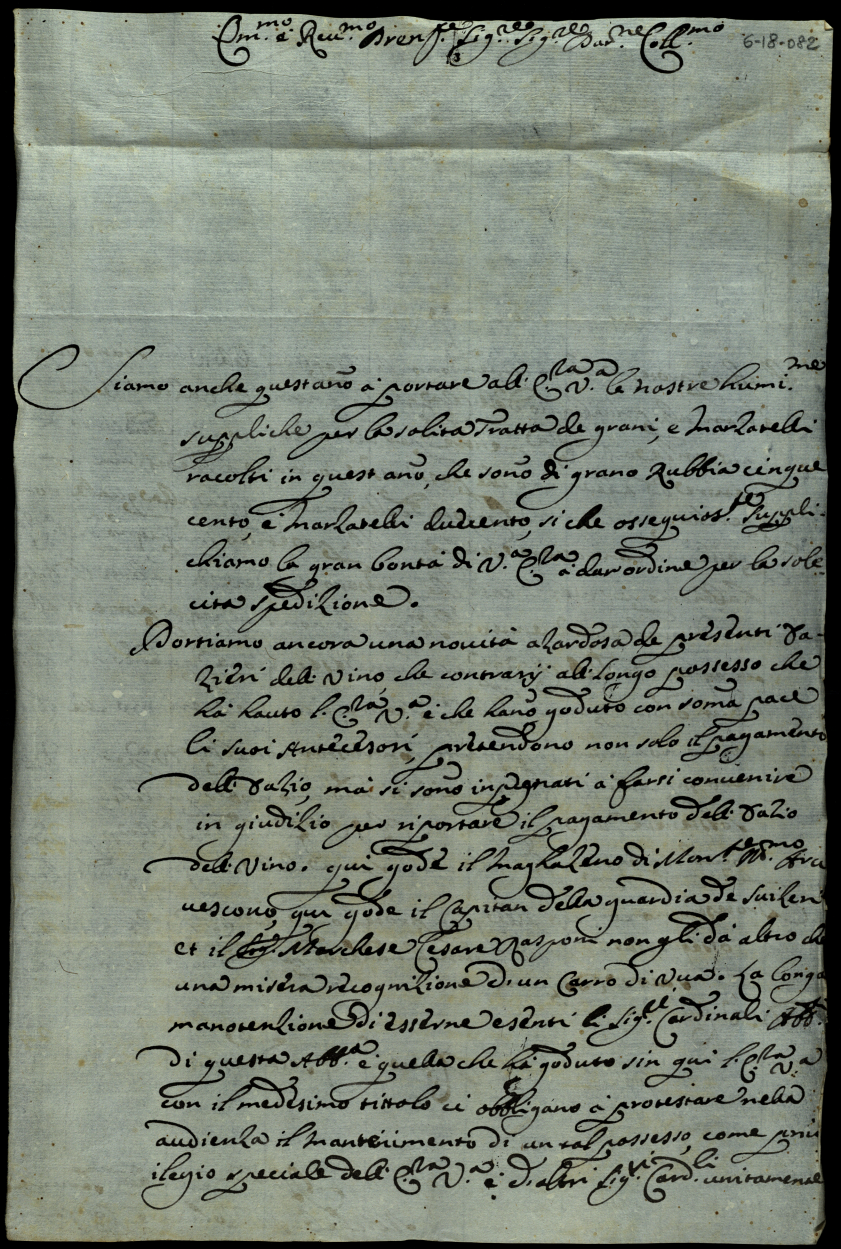 Em.mo e Reu.mo Prenpe Sig.re Sig.re Pad.ne Coll.mo
6-18-082
Siamo anche quest'año à portare all' E.za V.a le nostre humi.me
suppliche per la solita Tratta de grani, e Marzatelli
racolti in quest año, che soño di grano Rubbia cinque
cento, e Marzatelli ducento, si che ossequioss.te suppli-
chiamo la gran bontà di V.a E.za à dar ordine per la sole-
cita spedizione.
Portiamo ancora una novità azardosa de presenti Da-
zieri dell vino, che contrarÿ all longo possesso che
hà hauto l'E.za V.a e che hano goduto con soma pace
li suoi Antecesori, pretendono non solo il pagamento
dell Dazio, mà si sono inpegnati à farsi convenire
in giudizio per riportare il pagamento dell Dazio
dell vino. quì gode il Maghazeno di Mons.re Ill.mo Arci
vescovo, quì gode il Capitan della guardia de suizeri
et il Sig. Marchese Cesare Rasponi non gli dà altro che
una misera recognizione d'un Carro di Vua. La longa
manotenzione di esserne esenti li Sig.ri Cardinali Abb.
di questa Abb.a è quella che hà goduto sin quì l'E.za V.a
con il medesimo tittolo ci obbligano à protestare nella
audienza il mantenimento di un tal possesso, come priu
ilegio speciale dell' E.za V.a e d'altri Sig.ri Card.li unitamente